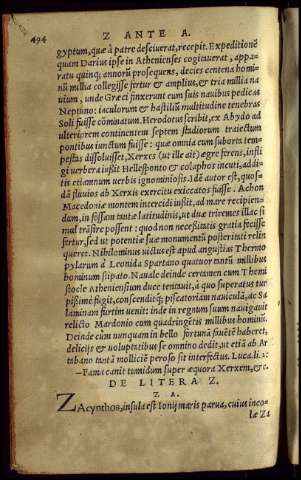 494 Z ANTE A.
gyptum, quæ à patre desciuerat, recepit. Expeditionē
quam Darius ipse in Athenienses cogitauerat, appa-
ratu quinq; annorū prosequens, decies centena homi-
nū millia collegisse fertur & amplius, & tria millia na
uium, unde Græci finxerunt eum suis nauibus pedicas
Neptuno: iaculorum & hastiliū multitudine tenebras
Soli fuisse cōminatum. Herodotus scribit, ex Abydo ad
ulteriorem continentem septem stadiorum traiectum
pontibus iunctum fuisse: quæ omnia cum suborta tem-
pestas dissoluisset, Xerxes (ut ille ait) ægre ferens, infli
gi uerbera iussit Hellesponto & colaphos incuti, addi-
tis etiamnum uerbis ignominiosis. Idē autor est, quos-
dā fluuios ab Xerxis exercitu exiccatos fuisse. Achon
Macedoniæ montem intercidi iussit, ad mare recipien-
dum, in fossam tantæ latitudinis, ut duæ triremes illac si
mul trāsire possent: quod non necessitatis gratia fecisse
fertur, sed ut potentiæ suæ monumentū posteritati relin
queret. Nihilominus uictus est apud angustias Thermo
pylarum à Leonida Spartano quatuor tantū millibus
hominum stipato. Nauale deinde certamen cum Themi
stocle Atheniensium duce tentauit, à quo superatus tur
pissime fugit, conscenditq; piscatoriam nauiculā, ac Sa
laminam furtim uenit: inde in regnum suum nauigauit
relicto Mardonio cum quadringētis millibus hominū.
Deinde cum nunquam in bello fortunā fauētē haberet,
delicijs & uoluptatibus se omnino dedit, ut etiā ab Ar
tabano tantā molliciē peroso sit interfectus. Luca. li. 2:
—Fama canit tumidum super æquora Xerxem, & c.
DE LITERA Z.
Z A.
ZAcynthos, insula est Ionij maris parua, cuius inco-
læ Za